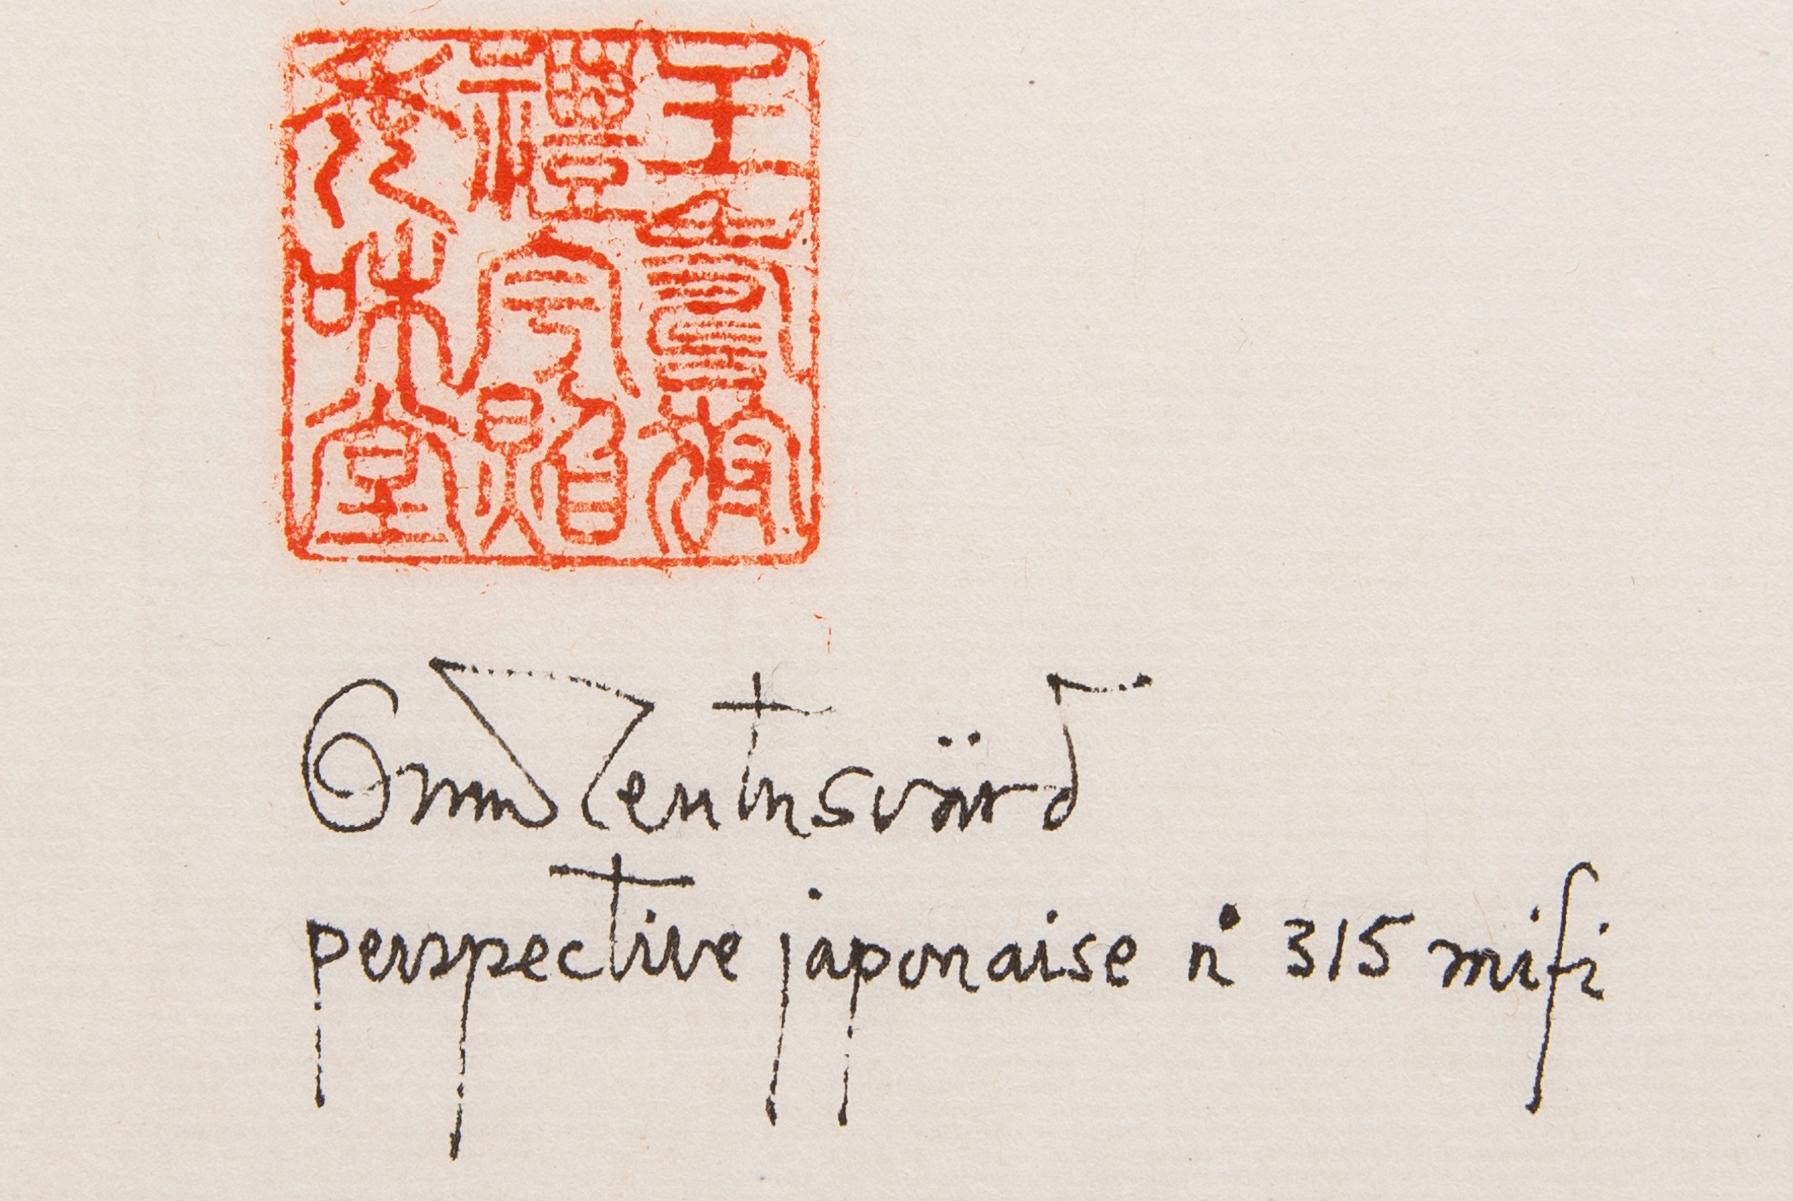 王壽
禮
味堂
Oscar Reutersvärd
perspective japonaise n° 315 mifi